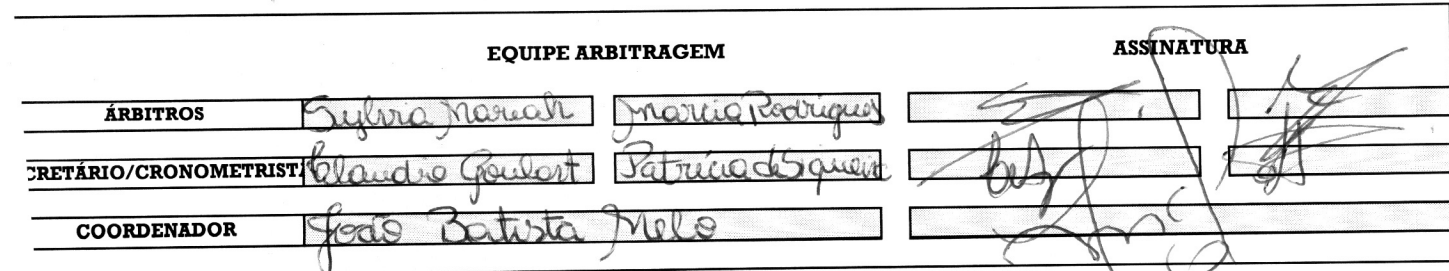 EQUIPE ARBITRAGEM ASSINATURA
ÁRBITROS Sylvia Mariah Marcia Rodrigues
CRETÁRIO/CRONOMETRIST Claudio Goulart Patrícia de Siqueira
COORDENADOR João Batista Melo